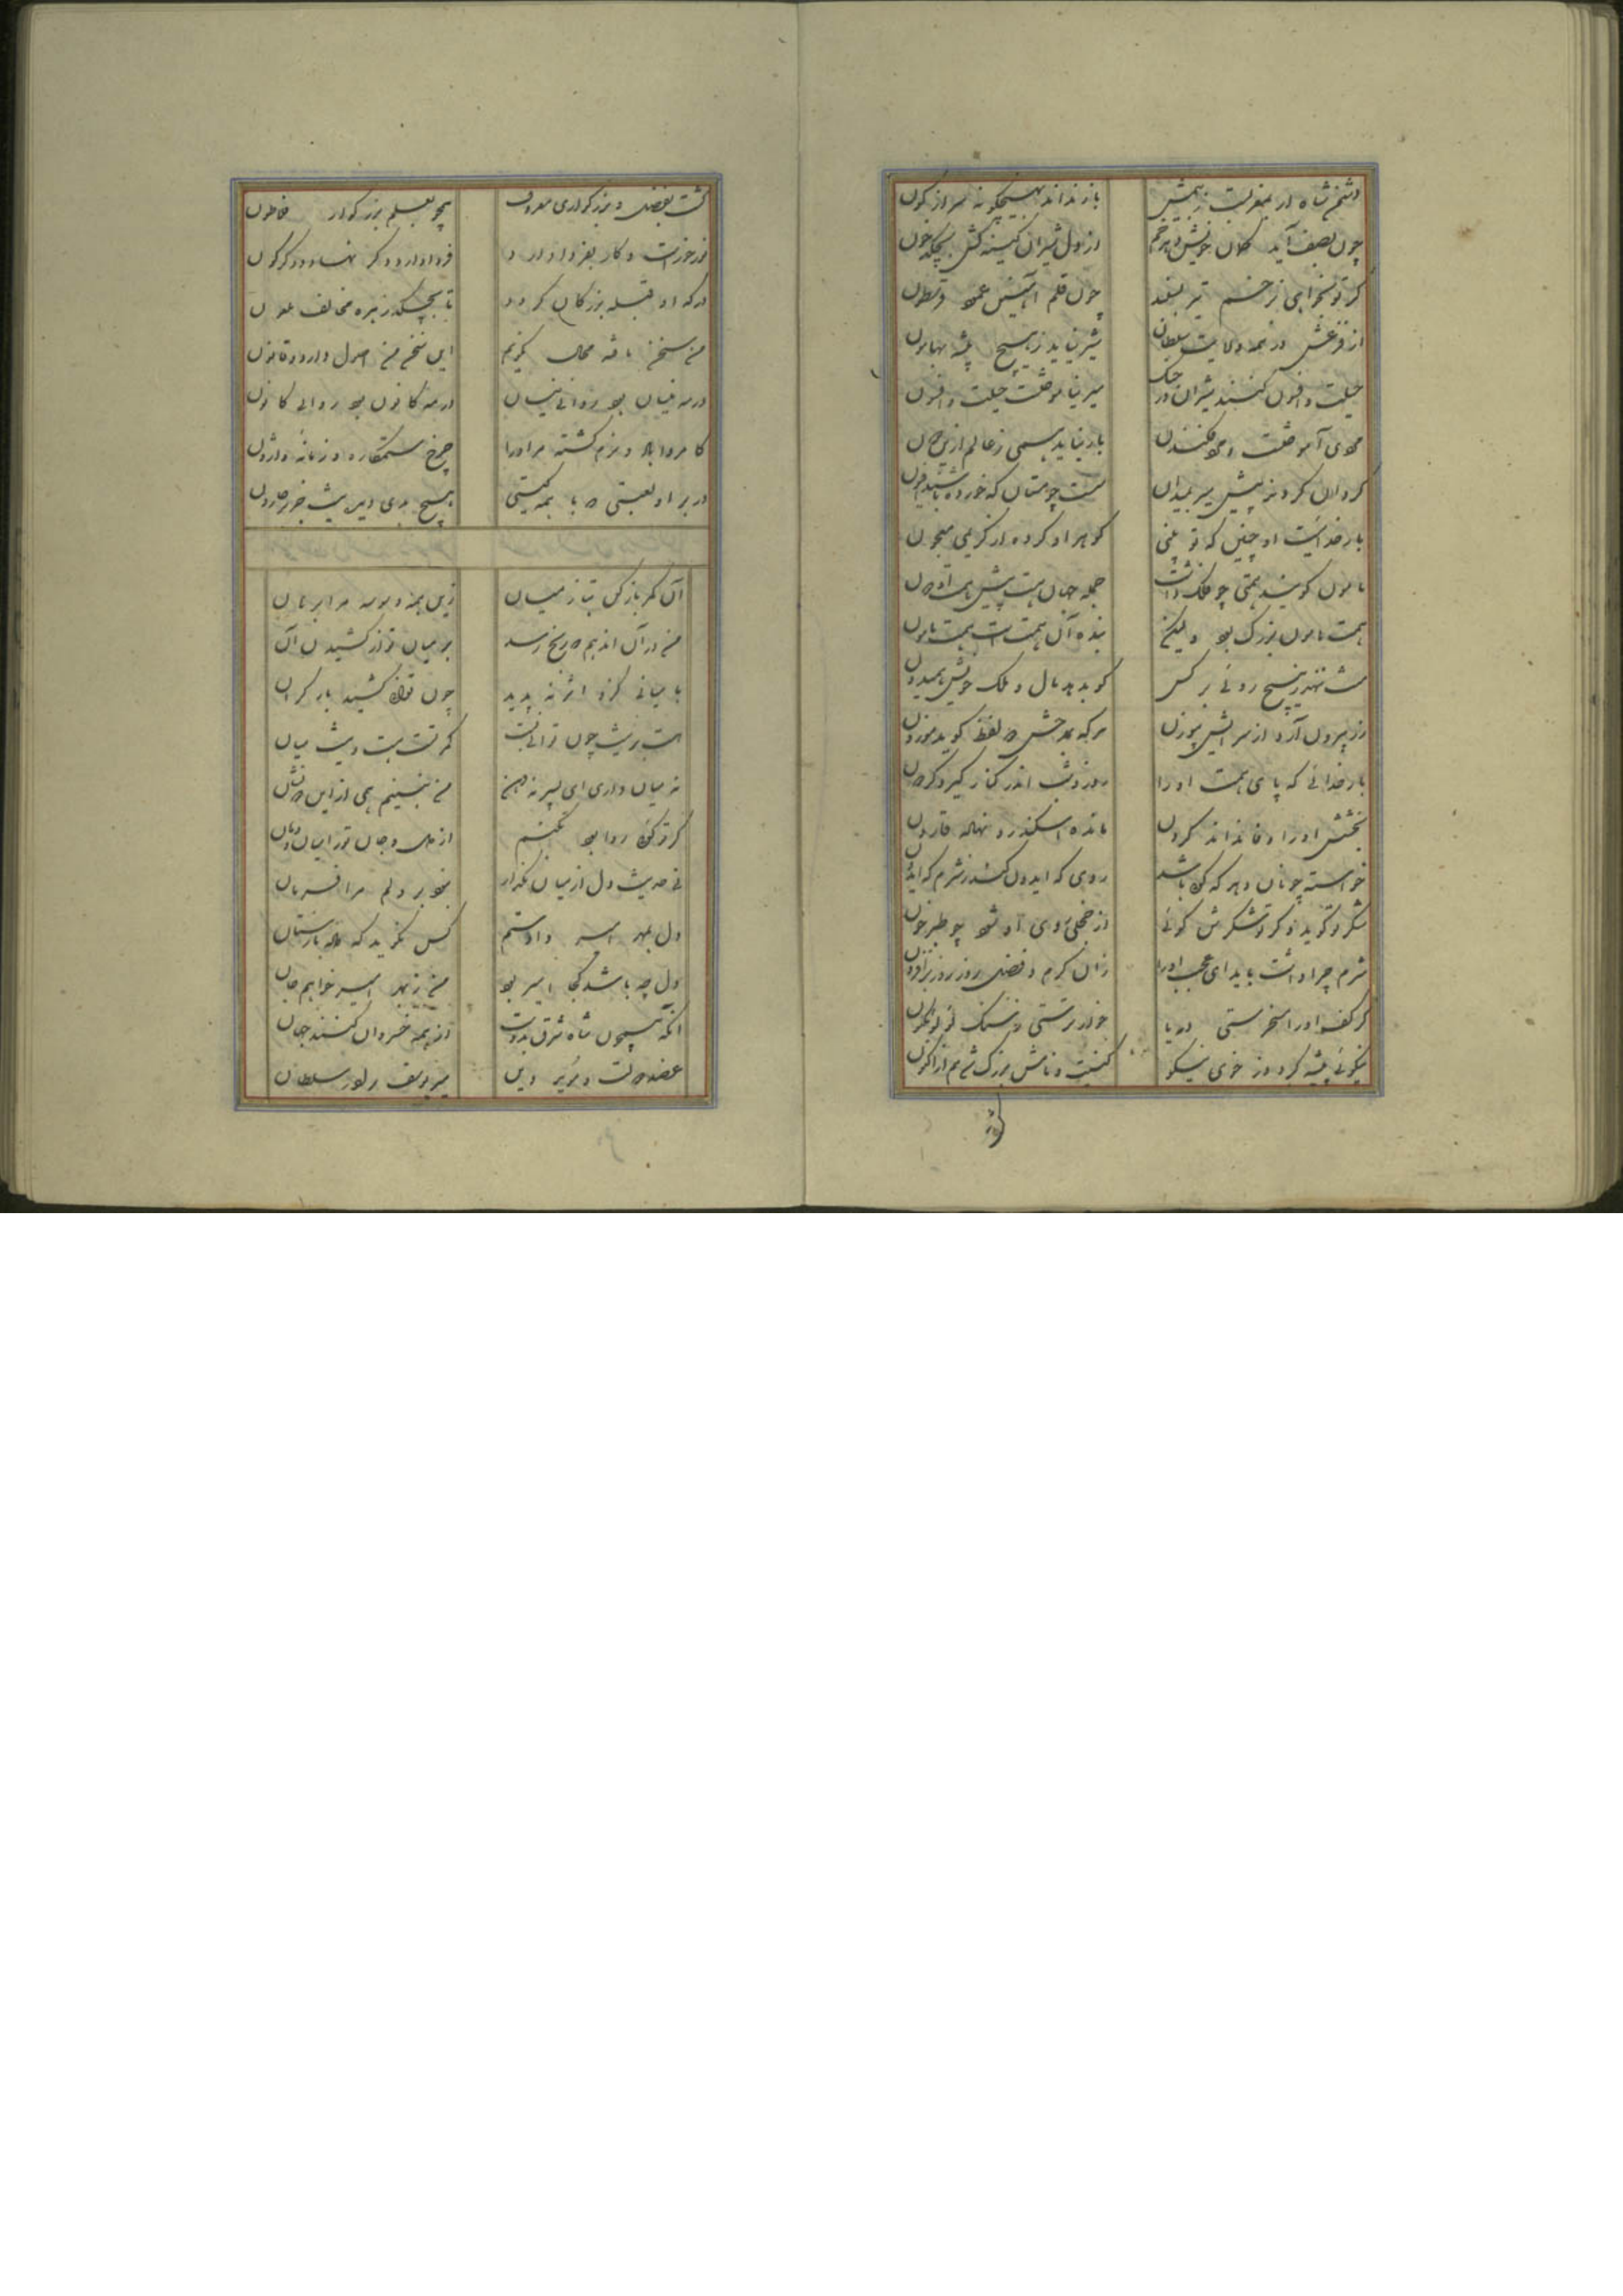 دشمن شاه ار بمغربست ز بیمش باز نداند بهیچگونه سر از کون
چون بصف آید کمان خویش دهد خم از دل شیران کینه کش بچکد خون
گر تو بخواهی ز خشم تیر بلند چون قلم آهنین عمود و ستون
از فزعش در همه ولایت سلطان شیر نیاید ز هیچ بیشه بهامون
حیلت و افسون کنند شیران در جنگ میر نیاموخت حیلت و افسون
باز نیاید همی ز عالم ازین
گردان گردند پیش میر بمیدان سست چو مستان که خورده باشند افیون
بار خدائیست او چنین که تو بینی گوهر او کرده از کریمی معجون
مامون گویند همتی چو فلک داشت جمله جهان هست پیش همت او دون
همت مامون بزرگ بود ولیکن بنده آن همت است همت مامون
منت ننهد ز هیچ روئی بر کس گو بدهد مال و ملک خویش همیدون
زر بیرون آرد از سرایش موزون هر که بمدحش دو لفظ گوید موزون
بار خدائی که پای همت او را روز و شب اندر کنار گیرد گردون
بخشش او را وفا نداند کردن مانده اسکندر و نهاده قارون
خواسته چونان دهد که گوئی باشد روی که ایدون کند ز شرم که ایدون
شکر تو گوید و گر تو شکرش گوئی از خجلی روی او شود چو طبرخون
شرم چرا داشت باید ای عجب او را زان کرم و فضل روز روز بر افزون
گر کف او را سخرستی دریا خوار ترستی ز سنگ لؤلؤ مکنون
نیکوئی پیشه کرد و از خوی نیکو کنیت و نامش بزرگ شد هم از اکنون
گشت
گشت بفضل و بزرگواری معروف همچو بعلم بزرگوار فلاطون
نور خور است و کار بفردا دارد فردا دارد دگر نهاد و دگرگون
درگه او قبله بزرگان گردد تا بچکد زهره مخالف ملعون
من سخن یافه محال نگویم این سخن من اصول دارد و قانون
در مه نیسان بود روائی نیسان در مه کانون بود روائی کانون
کامروا باد و نرم گشته مر او را چرخ ستمکاره و زمانه وارون
در بر او لعبتی که با همه گیتی هیچ بدی در سرشت خویش
آن کمر باز کن بتا ز میان زین همه وسوسه مرا برهان
من در آن اندهم که رنج رسد بر میان تو از کشیدن آن
با میانی کزو اثر نه پدید چون توانی کشید بار گران
هست بر نیست چون توانی بست کمرت هست و نیست میان
نه میان داری ای پسر نه دهن من نبینم همی ازین دو نشان
گر تو گوئی روا بود بکنم از تن و جان ترا میان و دهان
نی حدیث دل از میان بگذار بنود بر دلم مرا فرمان
دل بمهر امیر دادستم کس نگوید که داده بازستان
دل چه باشد کجا امیر بود من ز بهر امیر خواهم جان
آنکه همچون شاه شرق بدوست از همه خسروان کنند جهان
عضد دولت و مؤید دین میر یوسف برادر سلطان